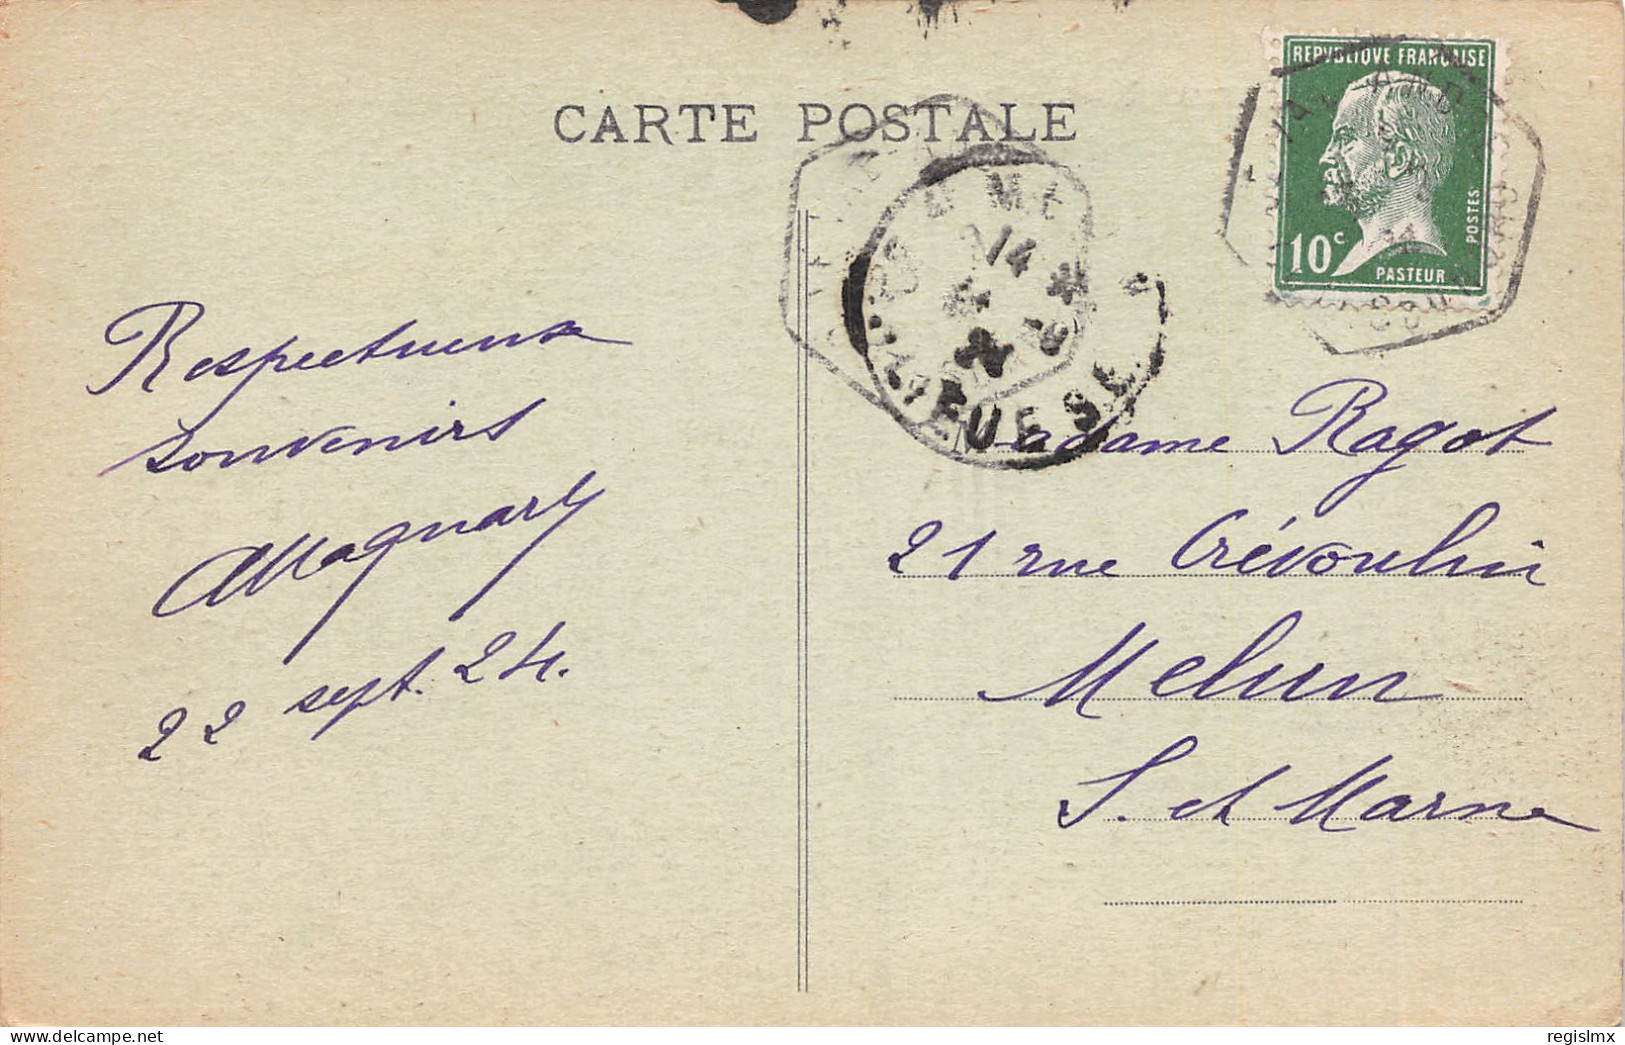 CARTE POSTALE
REPVBLIQVE FRANÇAISE
10c
POSTES
PASTEUR
14
Respectueux
souvenirs
22 sept. 24.
Madame Ragot
21 rue Crévoulin
Melun
S. et Marne
www.delcampe.net
regislmx